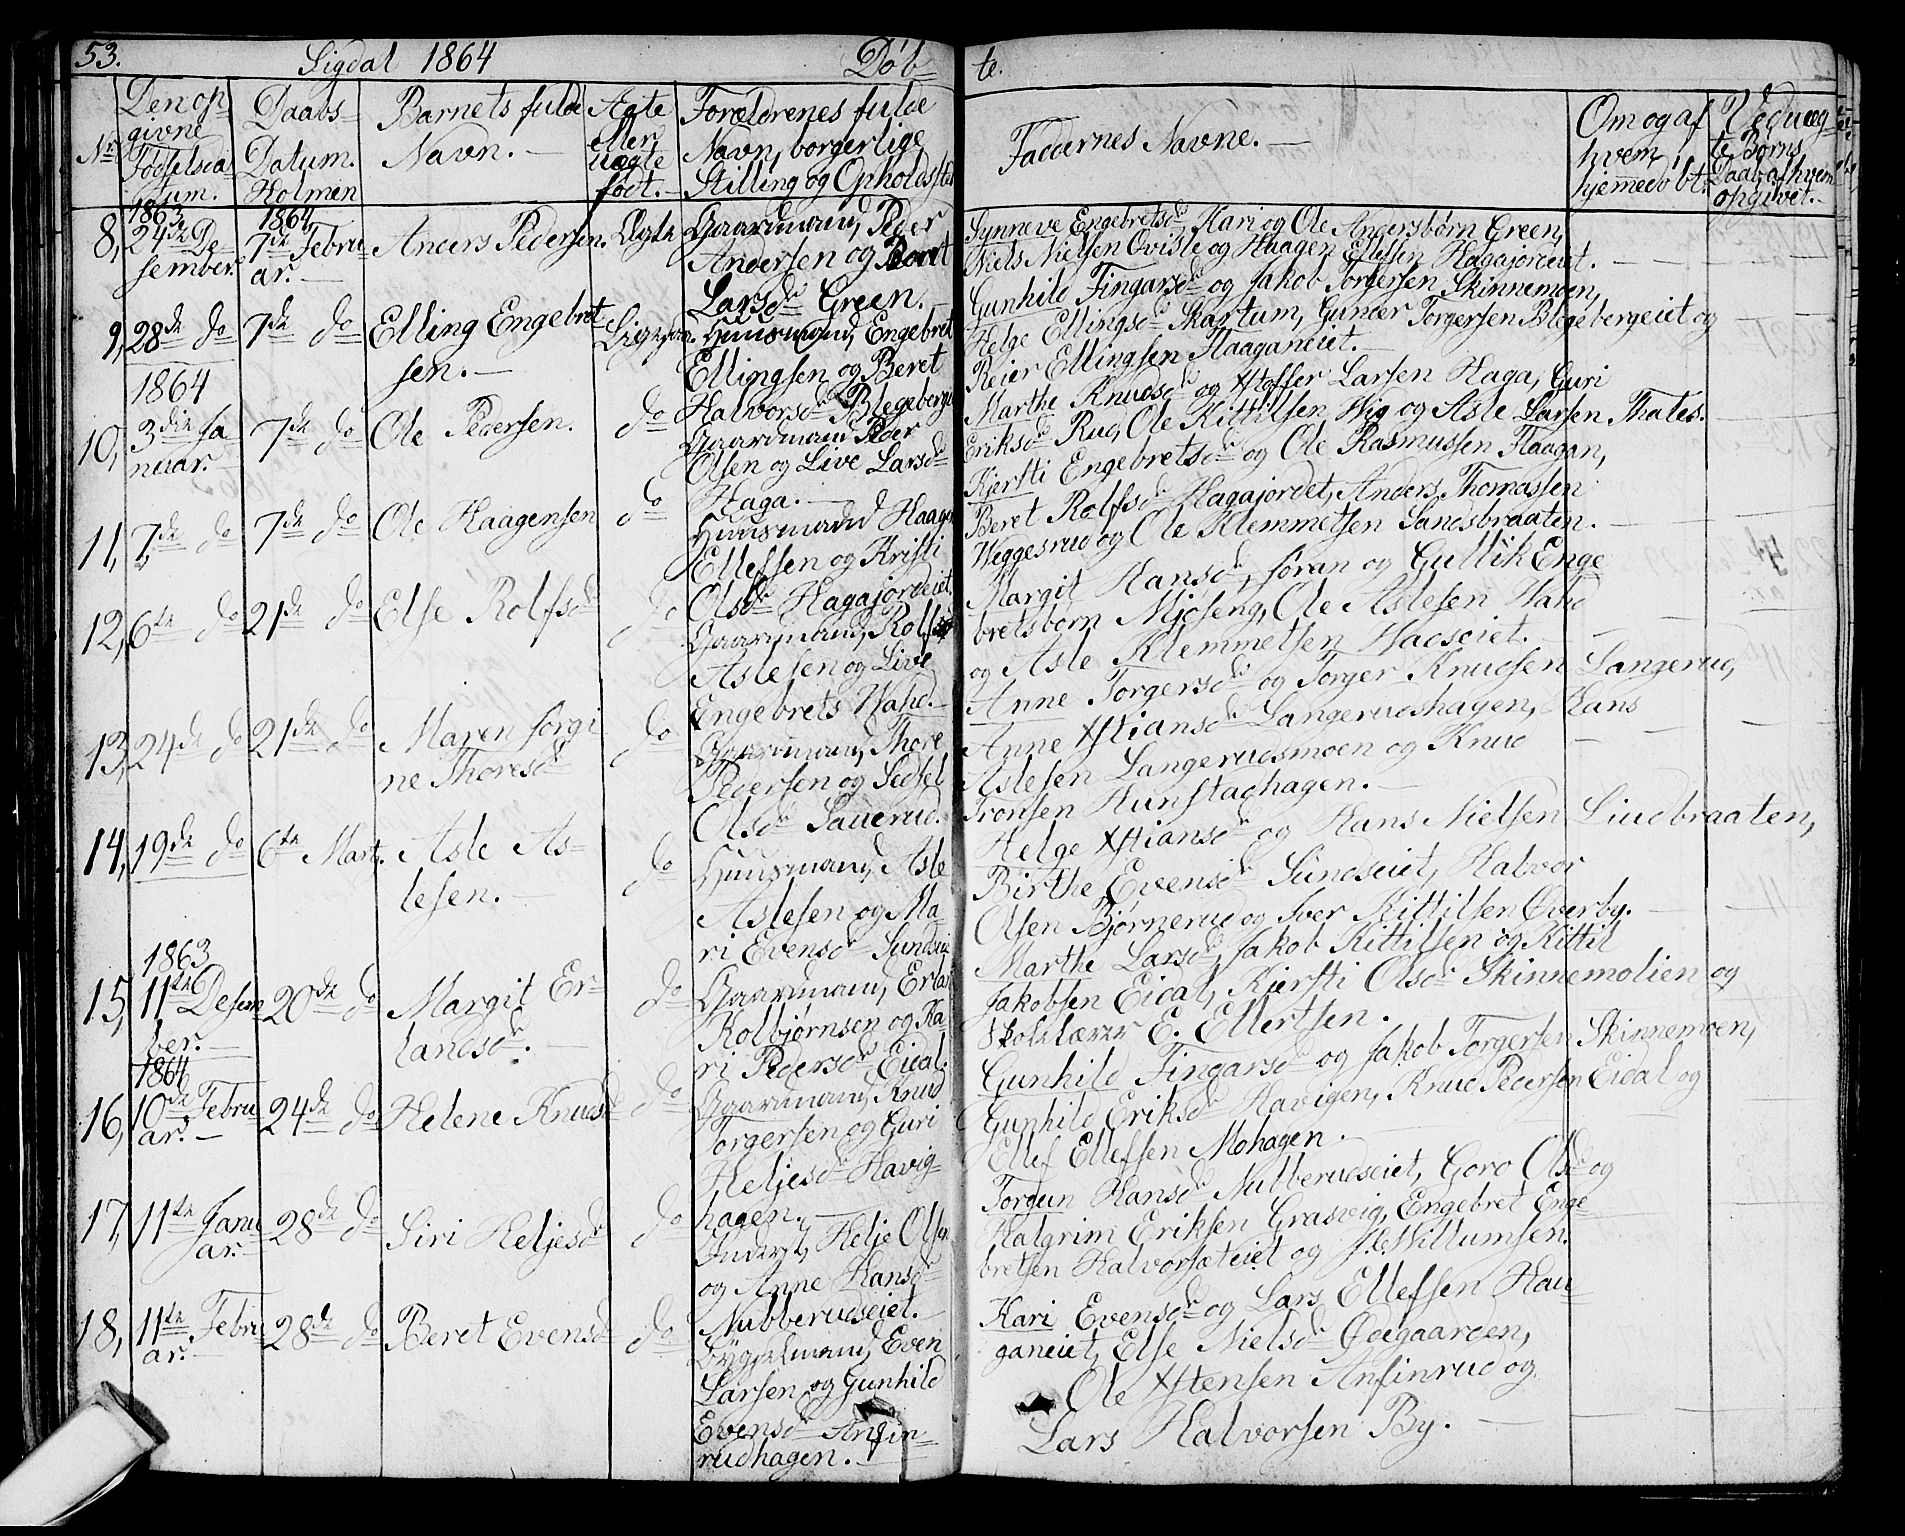 53. Sigdal 1864 Døb=
te.
Nr.
Den op
givne
Fødselsda
tum.
Daabs=
Datum.
Holmen
Barnets fulde
Navn. —
Ægte
eller
uægte
født. —
Forældrenes fulde
Navn, borgerlige
Stilling og Opholdsste
Faddernes Navne. —
Om og af
hvem
hjemmedøbt.
Ved uæg
te Børns
Daab af hvem
opgivet. —
8,
1863
24de De=
sember.
1864
7de Febru
ar. —
Anders Pedersen.
Ægte
Gaardmand, Peder
Andersen og Berit
Larsdr Green. —
Synneve Engebretsdr, Kari og Ole Andersbørn Green,
Niels Nielsen Qvisle og Haagen Ellefsen Hagajordeiet. —
9, 28de do
7de do
Elling Engebret
sen. —
Huusmand, Engebret
Ellingsen og Beret
Halvorsdr Blegeberge
Gunhild Fingarsdr og Jakob Torgersen Skinnemoen,
Helge Ellingsdr Skartum, Gunder Torgersen Blegebergeiet og
Reier Ellingsen Haaganeiet. —
10,
1864
3die Ja
nuar. —
7de do
Ole Pedersen.
do
Gaardmand Peder
Olsen og Live Larsdr
Haga. —
Marthe Knudsdr og Xstoffer Larsen Haga, Guri
Eriksdr Rud, Ole Kittilsen Wig og Asle Larsen Thates.
11, 7de do
7de do
Ole Haagensen
do
Huusmand Haagen
Ellefsen og Kristi
Olsdr Hagajordeiet.
Kjersti Engebretsdr og Ole Rasmussen Haagan,
Beret Rolfsdr Hagajordet, Anders Thomassen
Weggesrud og Ole Klemmetsen Sandsbraaten. —
12, 6te do
21de do
Else Rolfsdr
do
Gaardmand, Rolf
Aslesen og Live
Engebrets Hahd. —
Margit Hansdr, Jøran og Gullik Enge
bretsbørn Mjøseng, Ole Aslesen Hahd
og Asle Klemmetsen Hadseiet. —
13, 24de do
21de do
Maren Jørgi
ne Thoresdr
do
Gaardmand, Thore
Pedersen og Sedsel
Olsdr Sauerud.
Anne Torgersdr og Torger Knudsen Langerud,
Anne Xstiansdr Langerudshagen, Hans
Aslesen Langerudsmoen og Knud
Tronsen Hunstadhagen. —
14, 19de do
6te Marts.
Asle As=
lesen. —
do
Huusmand, Asle
Aslesen og Ma=
ri Evensdr Sundseie
Helge Xstiansdr og Hans Nielsen Liudbraaten,
Birthe Evensdr Sundseiet, Halvor
Olsen Bjørnerud og Iver Kittilsen Øverby.
15,
1863
11te Desem
ber. —
20de do
Margit Er=
landsdr. —
do
Gaardmand, Erlan
Kolbjørnsen og Ka=
ri Pedersdr Eidal.
Marthe Larsdr, Jakob Kittilsen og Kittil
Jakobsen Eidal, Kjersti Olsdr Skinnemolien og
Skolelærer E. Ellertsen.
16,
1864
10de Febru
ar. —
24de do
Helene Knudsd
do
Gaardmand, Knud
Torgersen og Guri
Heljesdr Havig=
hagen. —
Gunhild Fingarsdr og Jakob Torgersen Skinnemoen,
Gunhild Eriksdr Havigen, Knud Pedersen Eidal og
Ellef Ellefsen Mohagen. —
17, 11te Janu
ar.
28de do
Siri Heljesdr
do
Inderst, Helje Olsen
og Anne Hansdr
Nubberudseiet. —
Torgun Hansdr Nubberudseiet, Goro Olsdr og
Halgrim Eriksen Grasvig, Engebret Enge
bretsen Halvorsæteiet og J. C. Willumsen.
18, 11te Febru
ar. —
28de do
Beret Evensd
do
Bygselmand, Even
Larsen og Gunhild
Evensdr Anfin=
rudhagen. —
Kari Evensdr og Lars Ellefsen Hau
ganeiet, Else Nielsdr Ødegaarden,
Ole Xstensen Anfinrud og
Lars Halvorsen By. —